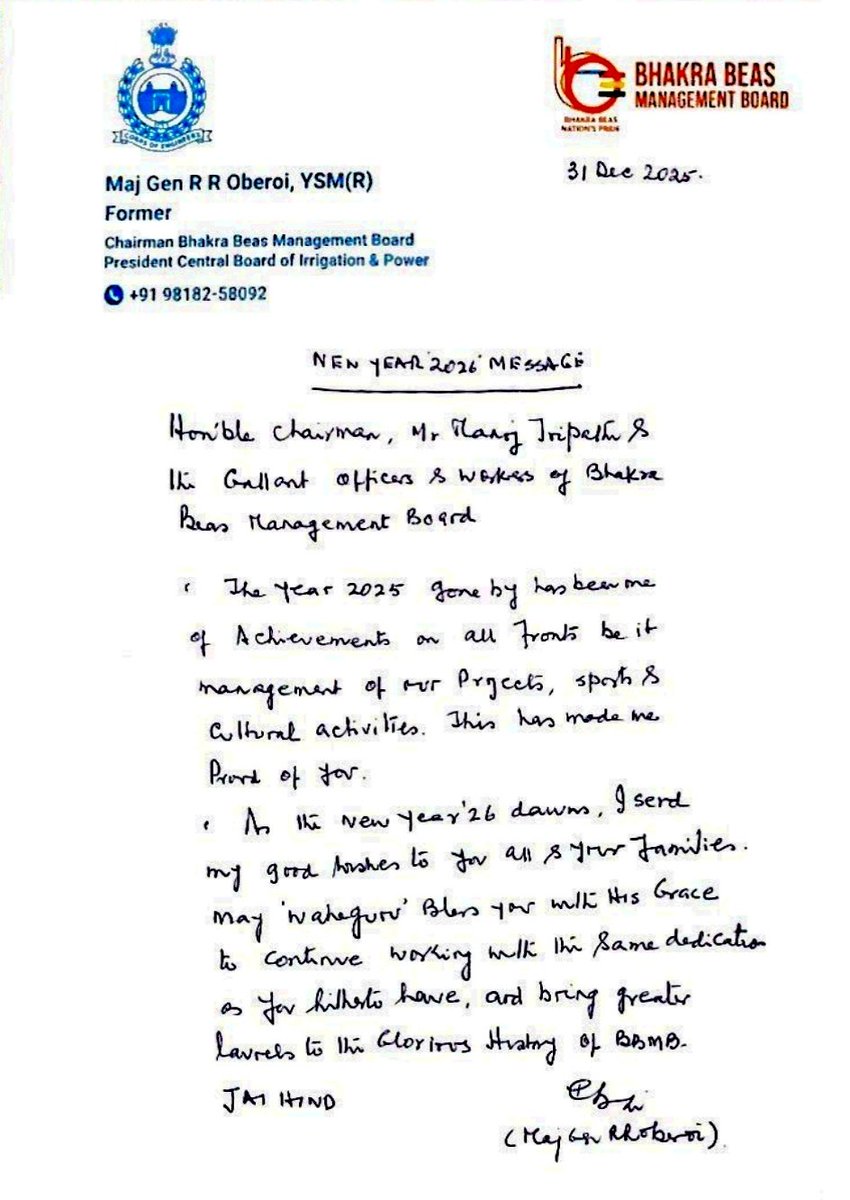 CORPS OF ENGINEERS
BHAKRA BEAS
MANAGEMENT BOARD
BHAKRA BEAS
NATION'S PRIDE
31 Dec 2025.
Maj Gen R R Oberoi, YSM(R)
Former
Chairman Bhakra Beas Management Board
President Central Board of Irrigation & Power
+91 98182-58092
NEW YEAR '2026' MESSAGE
Hon'ble Chairman, Mr Manoj Tripathi &
the Gallant officers & workers of Bhakra
Beas Management Board
The Year 2025 gone by has been one
of Achievements on all Fronts be it
management of our Projects, sports &
Cultural activities. This has made me
Proud of you.
As the New Year '26 dawns, I send
my good wishes to you all & your families.
May 'Waheguru' Bless you with His Grace
to continue working with the same dedication
as you hitherto have, and bring greater
laurels to the Glorious History of BBMB.
JAI HIND
(Maj Gen R R Oberoi)